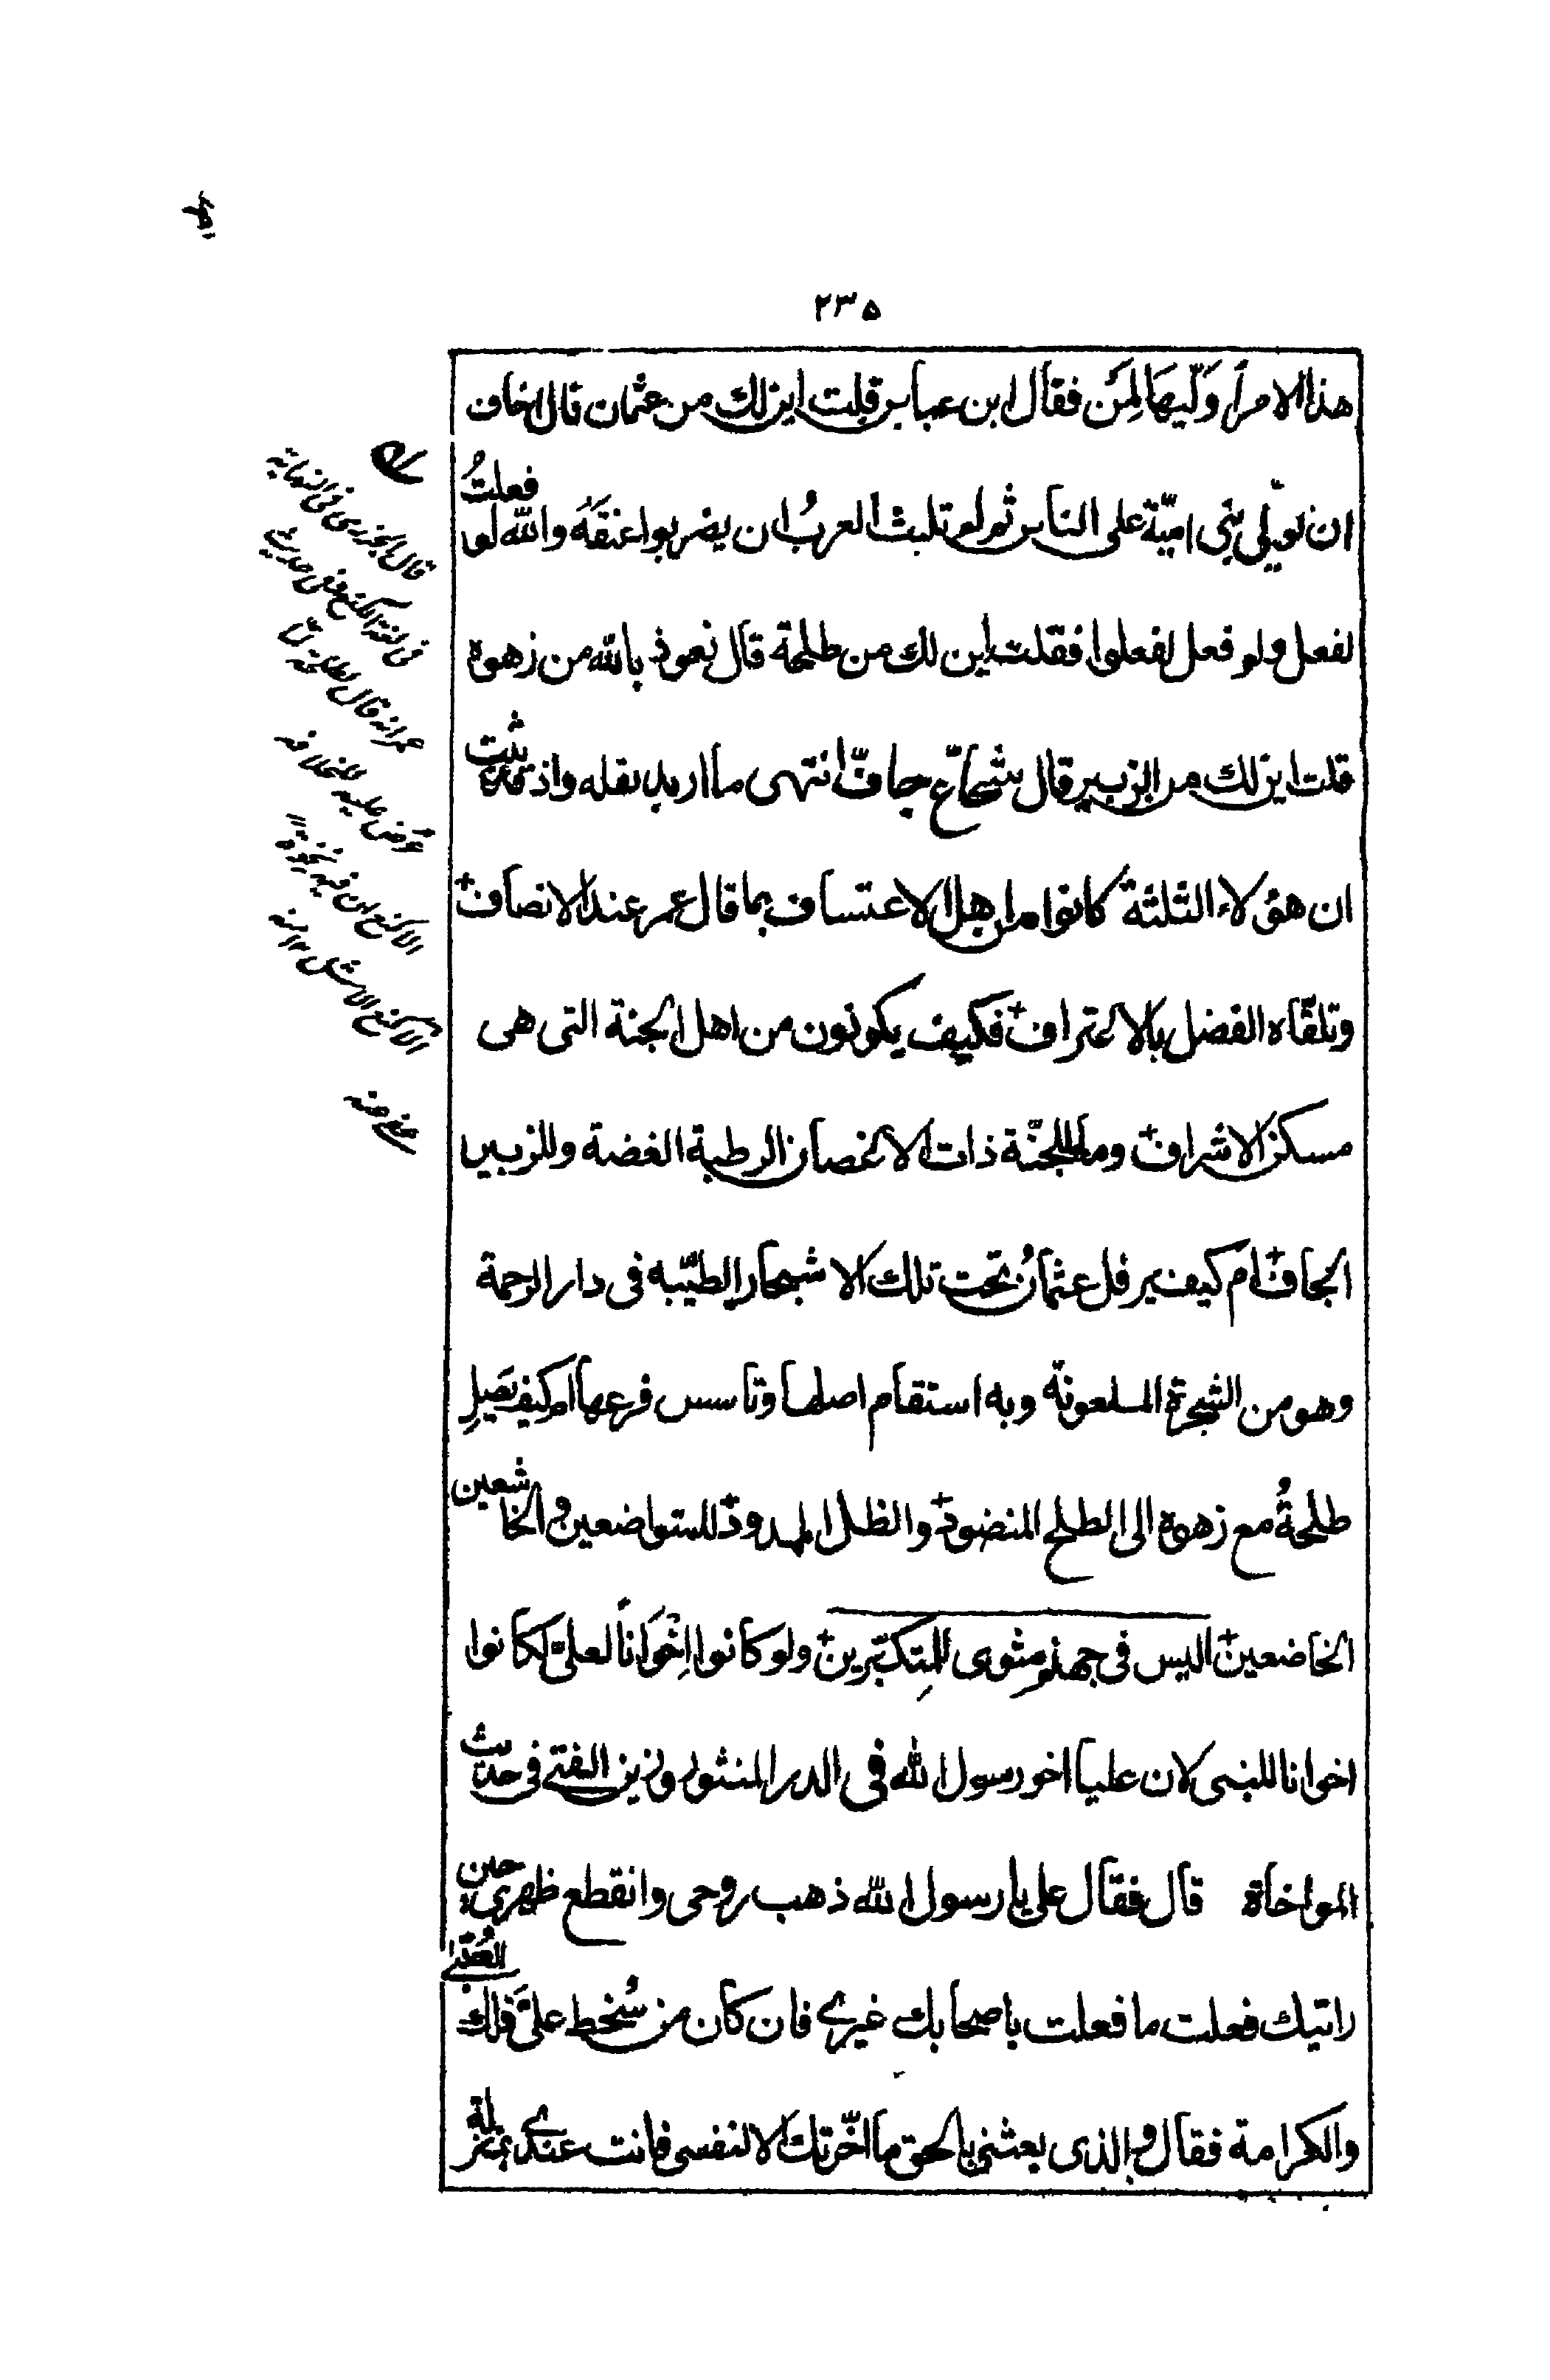 ٢٣٥
هذا الامر أوَلّيهَا لِمَن فقال ابن عباس قلت اين لك من عثمان قال اخاف
ان يولى بنى اميّة على الناس ثم لم تلبث العربُ ان يضربوا عنقَهُ والله لو فعلتُ
لفعل ولو فعل لفعلوا فقلت اين لك من طلحة قال نعوذ بالله من زهوه
قلت اين لك من الزبير قال شحّاع جافّ انتهى ما اريد نقله واذ
ان هؤلاء الثلثة كانوا من اهل الاعتساف بما قال عمر عند الانصاف
وتلقّاه الفضل بالاعتراف فكيف يكونون من اهل الجنة التى هى
مسكن الاشراف وما للجنّة ذات الاغصان الرطبة الغضة وللزبير
الجاف ام كيف يرفل عثمانُ تحت تلك الاشجار الطيّبه فى دار الرحمة
وهو من الشجرة الملعونة وبه استقام اصلها وتاسس فرعها ام كيف يَصير
طلحةُ مع زهوه الى الطلح المنضود والظل الممدود للمتواضعين والخاشعين
الخاضعين اليس فى جهنم مثوى للمتكبّرين ولو كانوا اِخْوَاناً لعلىّ لكانوا
اخوانا للنبى لان عليا اخو رسول الله فى الدر المنثور وزين الفتى فى حديث
المواخاة قال فقال على يا رسول الله ذهب روحى وانقطع ظهرى حين
راتيك فعلت ما فعلت باصحابك غيرى فان كان من سُخط علىَّ فلك العُتبى
والكرامة فقال والذى بعثنى بالحق ما اخّرتك الا لنفسى فانت عندى بمنزلة
قال الجزرى فى النهاية
فى لغة الكنع فى حديث
عمر انه قال لطلحة لمّا
عرض عليه للخلافه
الاكنع ان فيه نخوة
الاكنع الاشل